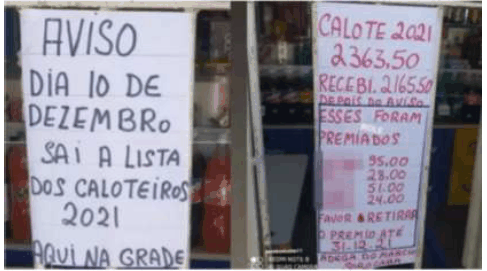 AVISO
DIA 10 DE
DEZEMBRO
SAI A LISTA
DOS CALOTEIROS
2021
AQUI NA GRADE
CALOTE 2021
2363,50
RECEBI. 2165,50
DEPOIS DO AVISO
ESSES FORAM
PREMIADOS
95.00
28.00
51.00
24.00
FAVOR RETIRAR
O PREMIO ATÉ
31-12-21
ADEGA DO MARCIO
REDMI NOTE 8
AI QUAD CAMERA